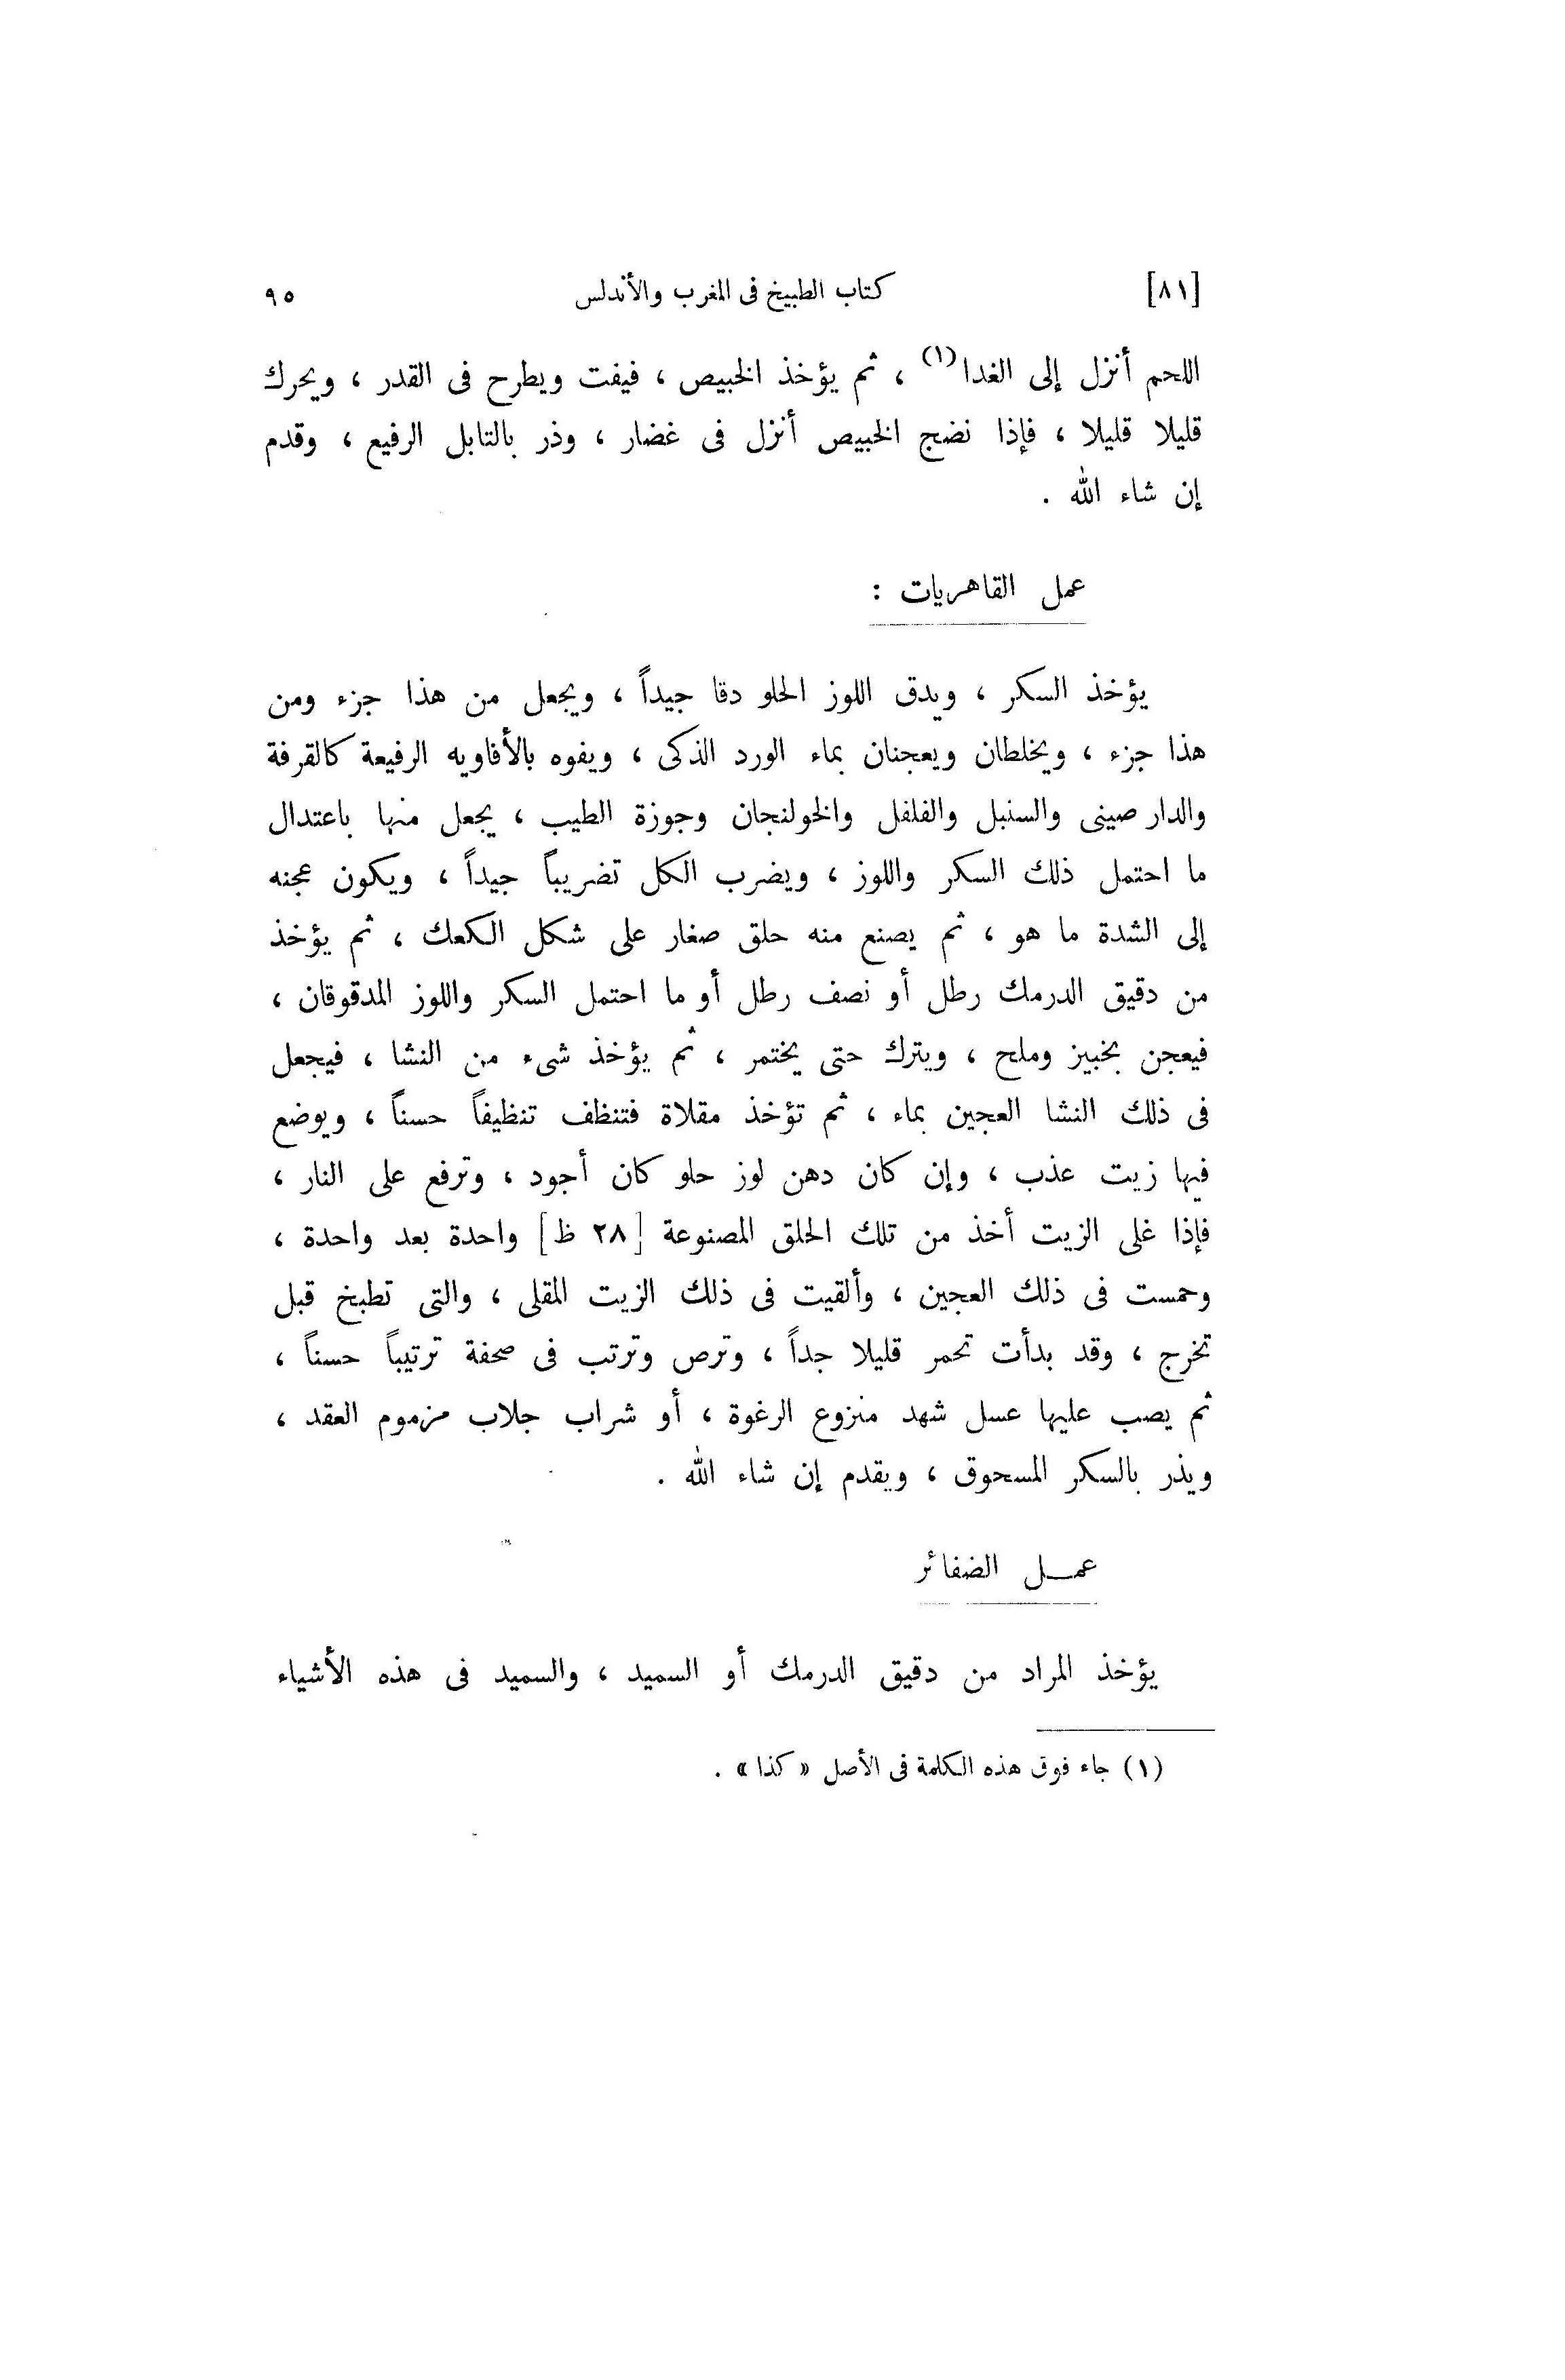 [٨١] كتاب الطبيخ فى المغرب والأندلس ٩٥
اللحم أنزل إلى الغدا(١) ، ثم يؤخذ الخبيص ، فيفت ويطرح فى القدر ، ويحرك
قليلا قليلا ، فإذا نضج الخبيص أنزل فى غضار ، وذر بالتابل الرفيع ، وقدم
إن شاء الله .
عمل القاهريات :
يؤخذ السكر ، ويدق اللوز الحلو دقا جيداً ، ويجعل من هذا جزء ومن
هذا جزء ، ويخلطان ويعجنان بماء الورد الذكى ، ويفوه بالأفاويه الرفيعة كالقرفة
والدار صينى والسنبل والفلفل والخولنجان وجوزة الطيب ، يجعل منها باعتدال
ما احتمل ذلك السكر واللوز ، ويضرب الكل تضريباً جيداً ، ويكون عجنه
إلى الشدة ما هو ، ثم يصنع منه حلق صغار على شكل الكعك ، ثم يؤخذ
من دقيق الدرمك رطل أو نصف رطل أو ما احتمل السكر واللوز المدقوقان ،
فيعجن بخبيز وملح ، ويترك حتى يختمر ، ثم يؤخذ شىء من النشا ، فيجعل
فى ذلك النشا العجين بماء ، ثم تؤخذ مقلاة فتنظف تنظيفاً حسناً ، ويوضع
فيها زيت عذب ، وإن كان دهن لوز حلو كان أجود ، وترفع على النار ،
فإذا غلى الزيت أخذ من تلك الحلق المصنوعة [٢٨ ظ] واحدة بعد واحدة ،
وحمست فى ذلك العجين ، وألقيت فى ذلك الزيت المقلى ، والتى تطبخ قبل
تخرج ، وقد بدأت تحمر قليلا جداً ، وترص وترتب فى صحفة ترتيباً حسناً ،
ثم يصب عليها عسل شهد منزوع الرغوة ، أو شراب جلاب مزموم العقد ،
ويذر بالسكر المسحوق ، ويقدم إن شاء الله .
عمـل الضفائر
يؤخذ المراد من دقيق الدرمك أو السميد ، والسميد فى هذه الأشياء
(١) جاء فوق هذه الكلمة فى الأصل « كذا » .